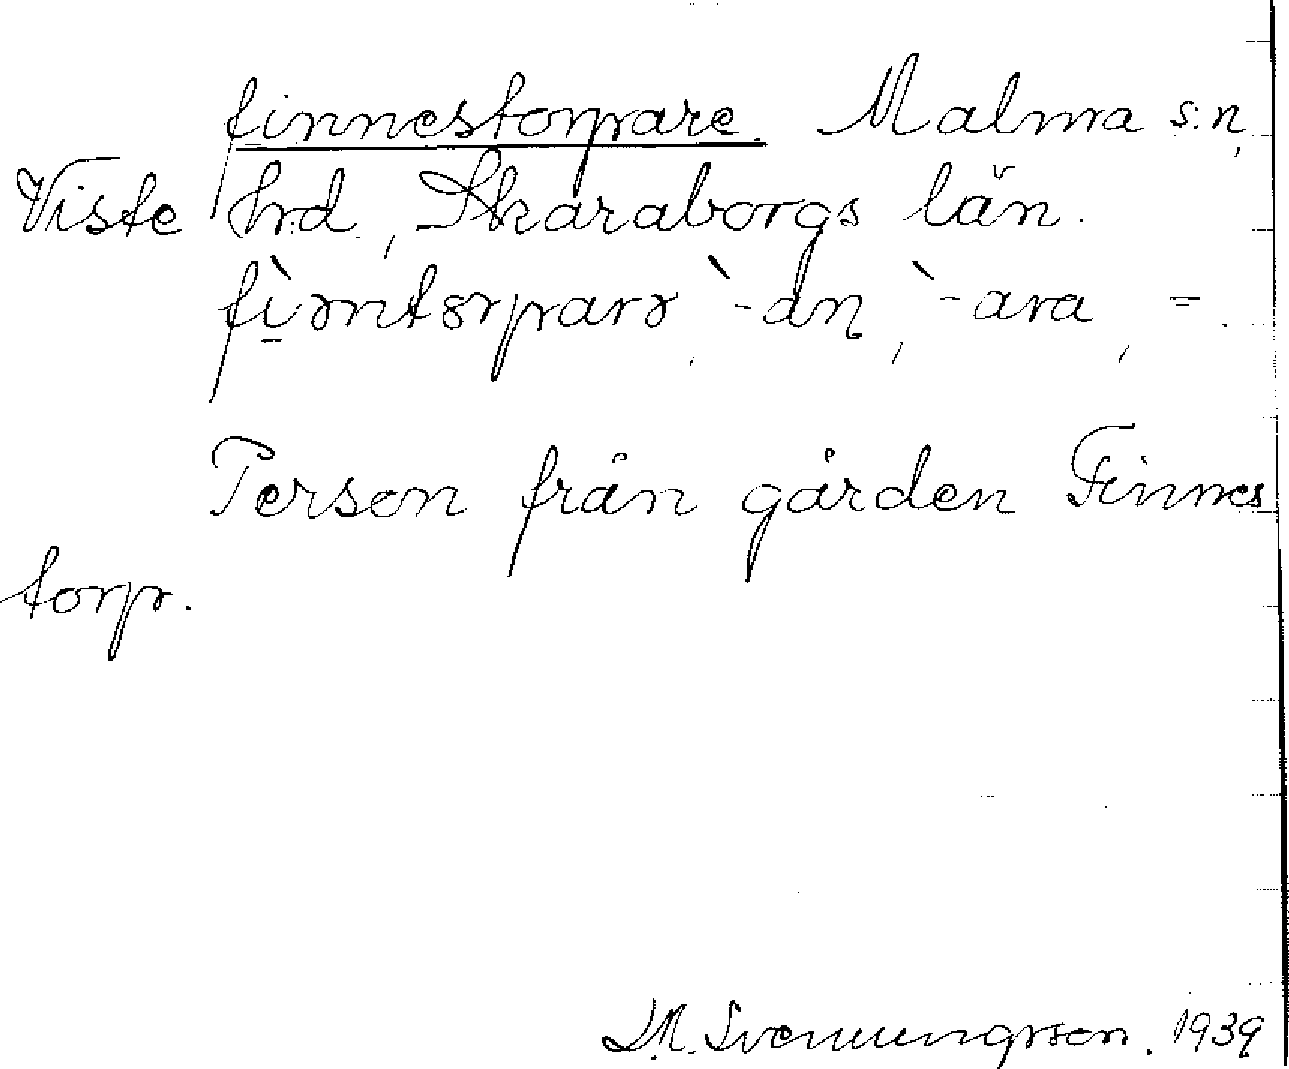 finnestorpare. Malma s:n,
Viste hrd, Skaraborgs län.
fìənstɔrparə, `-an, `-ara, =.
Person från gården Finnes
torp.
M. Svenungsson. 1939